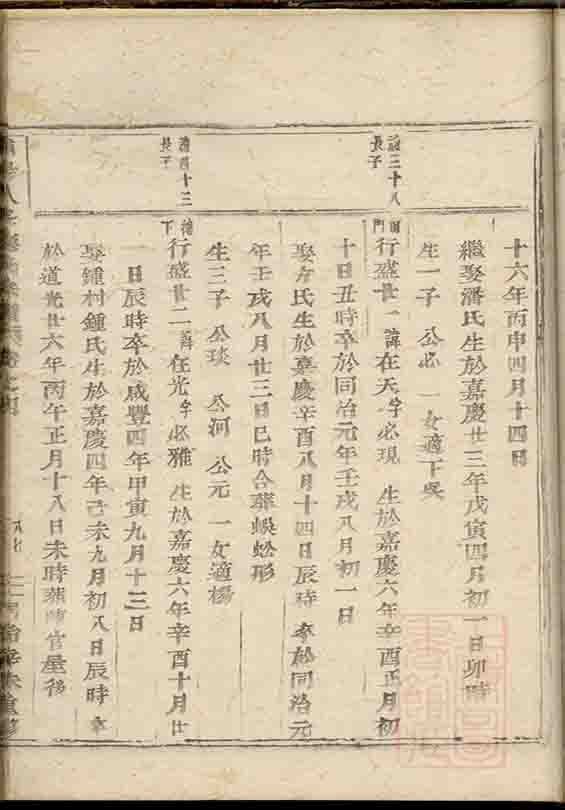 十六年丙申四月十四日
繼娶潘氏生於嘉慶廿三年戊寅四月初一日卯時
生一子 公必 一女適下吳
三十八
長子
前門
行盛廿一諱在天字必現 生於嘉慶六年辛酉正月初
十日丑時卒於同治元年壬戌八月初一日
娶方氏生於嘉慶辛酉八月十四日辰時 卒於同治元
年壬戌八月廿三日巳時合葬蜈蚣形
生三子 公琰 公河 公元 一女適楊
四十三
長子
行盛廿二諱在光字必雅 生於嘉慶六年辛酉十月廿
一日辰時卒於咸豐四年甲寅九月十三日
娶鍾村鍾氏生於嘉慶四年己未九月初八日辰時 卒
於道光廿六年丙午正月十八日未時葬 官屋後
八七
同治辛未重修